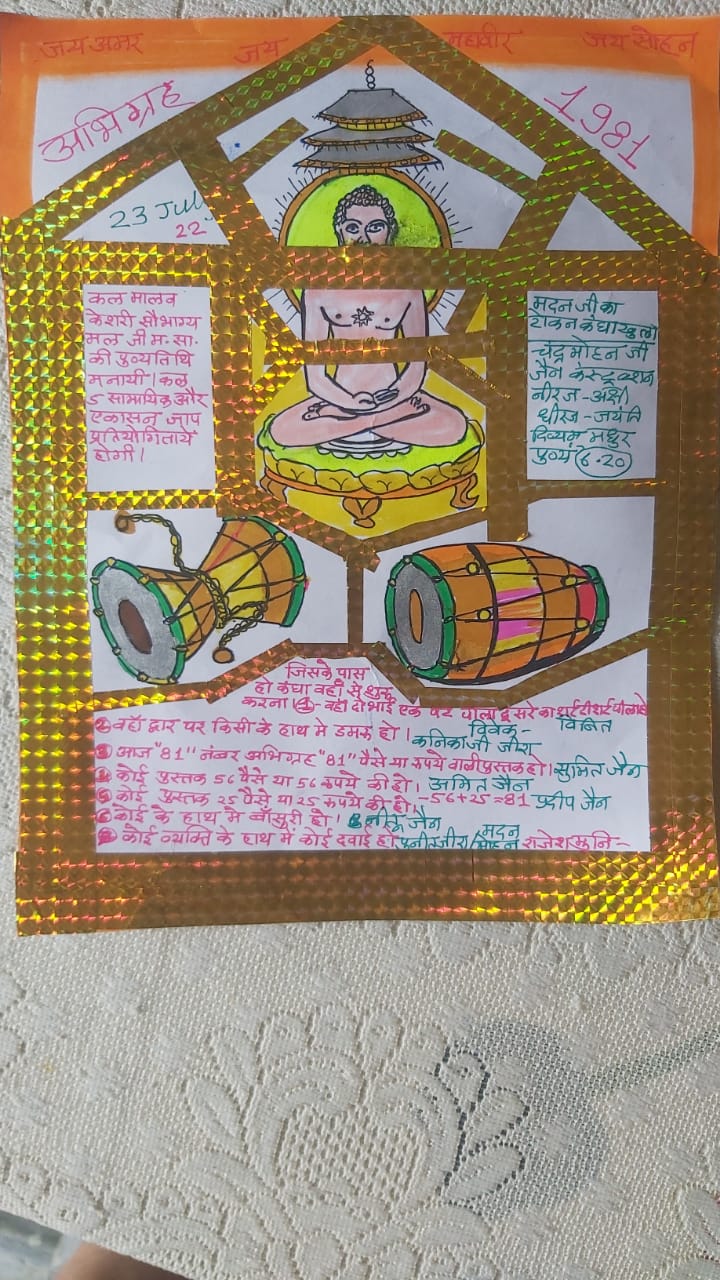 जय अमर जय महावीर जय सोहन
अभिग्रह 1981
23 July
22
कल मालव
केशरी सौभाग्य
मल जी म. सा.
की पुण्यतिथि
मनायी। कल
5 सामायिक और
एकासन जाप
प्रतियोगितायें
होगी।
मदन जी का
चंद्र मोहन जी
जैन कंस्ट्रक्शन
नीरज - अर्क्षी
धीरज - जयंति
दिव्यम मधुर
पुण्य 6.20
जिसके पास
हो कंघा वहाँ से शुरू
करना। 1- वहाँ दो भाई एक
2 वहाँ द्वार पर किसी के हाथ मे डमरू हो। विवेक - विनित
कनिका जी जीरा
3 आज "81" नंबर अभिग्रह "81" पैसे या रुपये वाली पुस्तक हो। सुमित जैन
4 कोई पुस्तक 56 पैसे या 56 रुपये की हो। अमित जैन
5 कोई पुस्तक 25 पैसे या 25 रुपये की हो। -56+25=81 प्रदीप जैन
6 कोई के हाथ मे बाँसुरी हो। नीरू जैन
कोई व्यक्ति के हाथ में कोई दवाई हो पुनीत जीरा/ मदन मोहन राजेश मुनि -